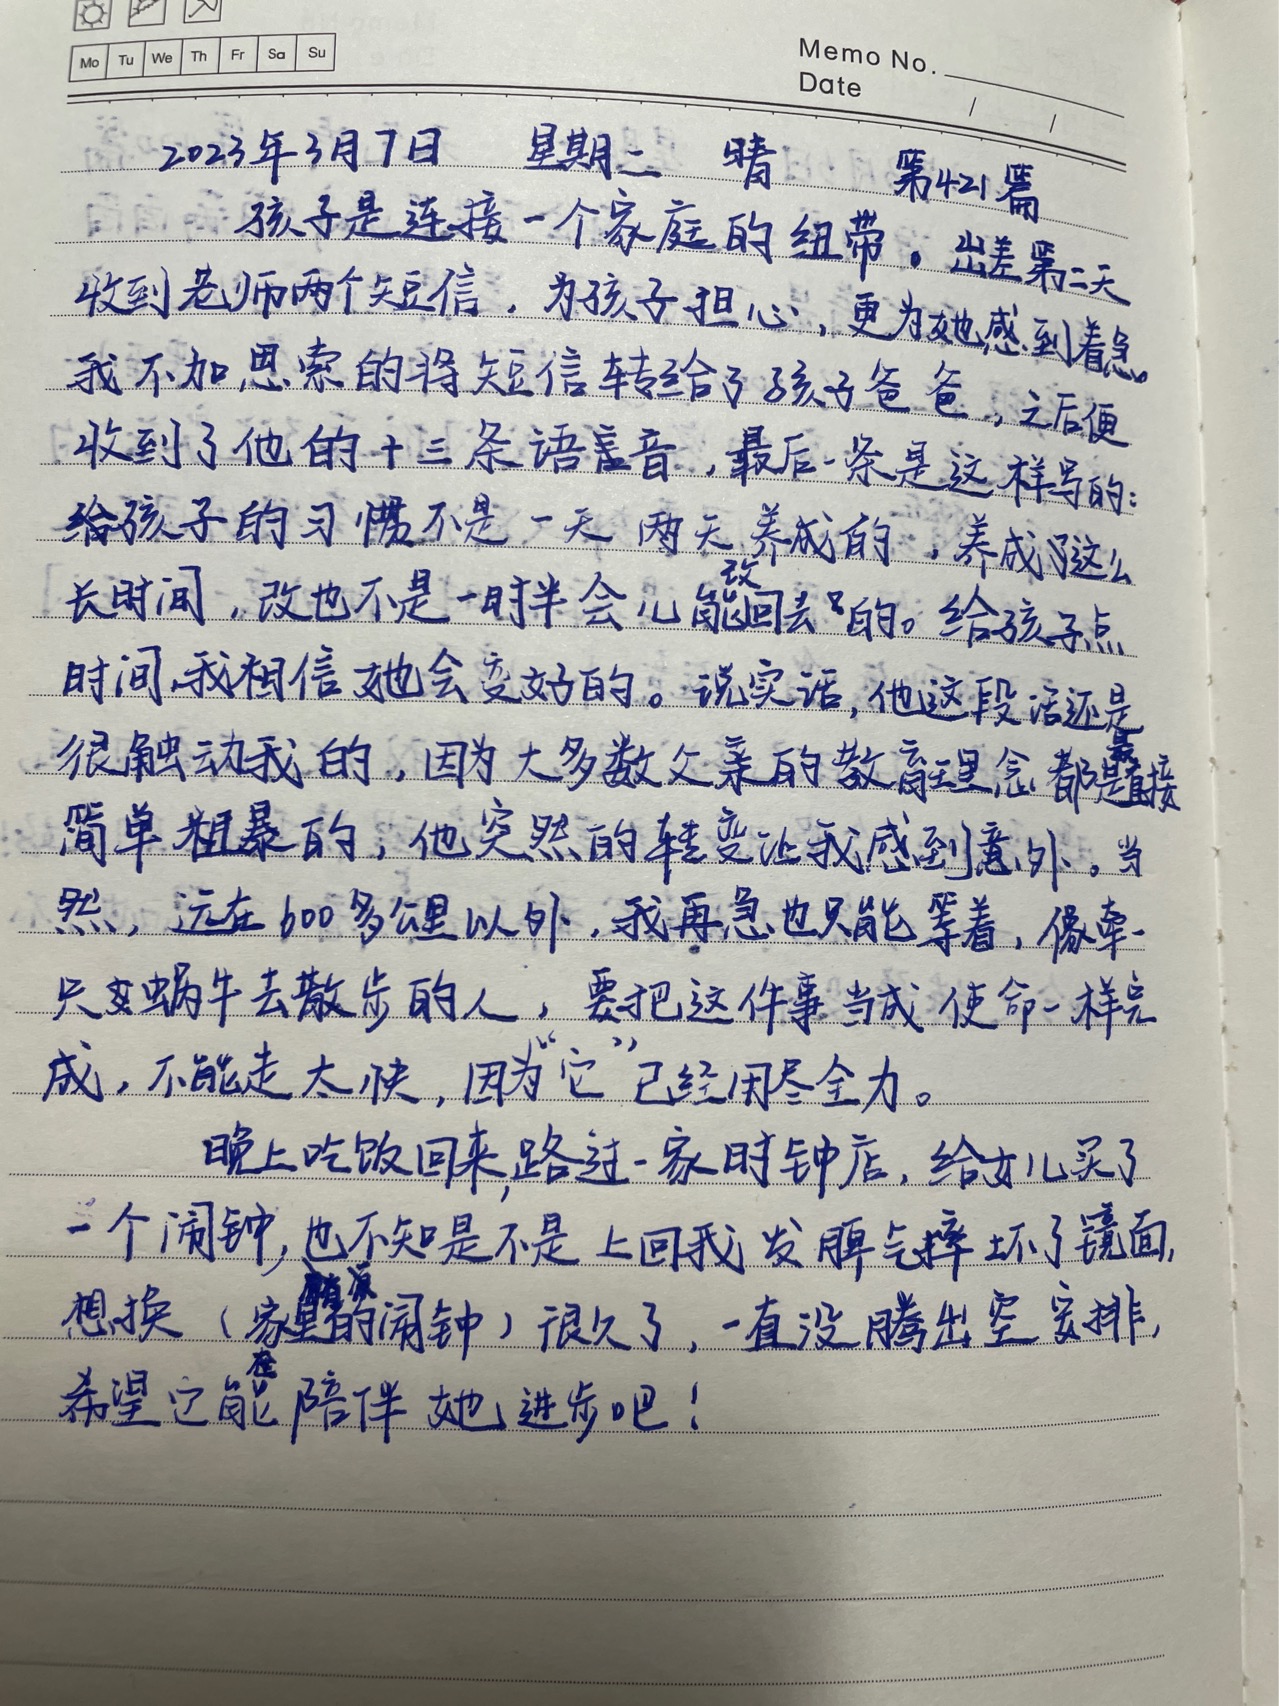 Mo Tu We Th Fr Sa Su
Memo No.
Date / /
2023年3月7日 星期二 晴 第421篇
孩子是连接一个家庭的纽带。出差第二天
收到老师两个短信，为孩子担心，更为她感到着急。
我不加思索的将短信转给了孩子爸爸，之后便
收到了他的十三条语音，最后一条是这样写的：
给孩子的习惯不是一天两天养成的，养成了这么
长时间，改也不是一时半会儿能改回去的。给孩子点
时间，我相信她会变好的。说实话，他这段话还是
很触动我的，因为大多数父亲的教育理念都是直接
简单粗暴的，他突然的转变让我感到意外。当
然，远在600多公里以外，我再急也只能等着，像牵一
只蜗牛去散步的人，要把这件事当成使命一样完
成，不能走太快，因为“它”已经用尽全力。
晚上吃饭回来，路过一家时钟店，给女儿买了
一个闹钟，也不知是不是上回我发脾气摔坏了镜面，
想换（家里的闹钟）很久了，一直没腾出空安排，
希望它能在陪伴她进步吧！